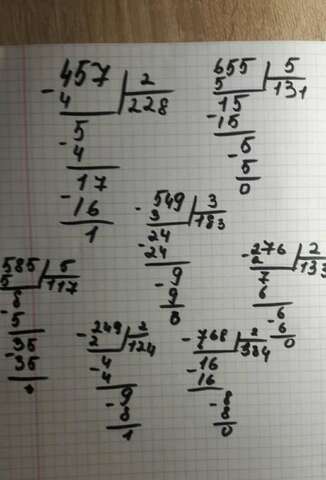 - 457 | 2
4 228
5
- 4
17
- 16
1
655 | 5
5 131
15
- 15
- 5
5
0
- 549 | 3
3 183
24
- 24
- 9
9
0
- 276 | 2
2 133
7
6
- 6
6
0
585 | 5
5 117
8
- 5
35
- 35
0
- 249 | 2
2 124
4
- 4
- 9
8
1
- 768 | 2
6 384
- 16
16
- 8
8
0